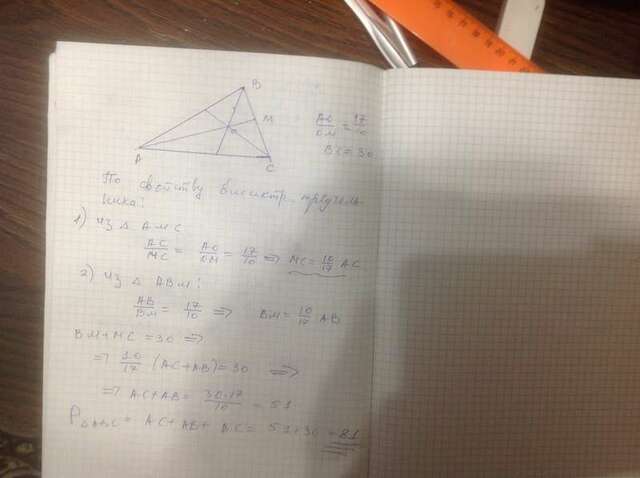 B
M
O
A
C
AO/OM = 17/10
BC = 30
По свойству биссектр. треуголь
ника:
1) Из △ AMC
AC/MC = AO/OM = 17/10 => MC = 10/17 AC
2) Из △ ABM:
AB/BM = 17/10 => BM = 10/17 AB
BM + MC = 30 =>
=> 10/17 (AC + AB) = 30 =>
=> AC + AB = 30·17/10 = 51
P△ABC = AC + AB + BC = 51 + 30 = 81